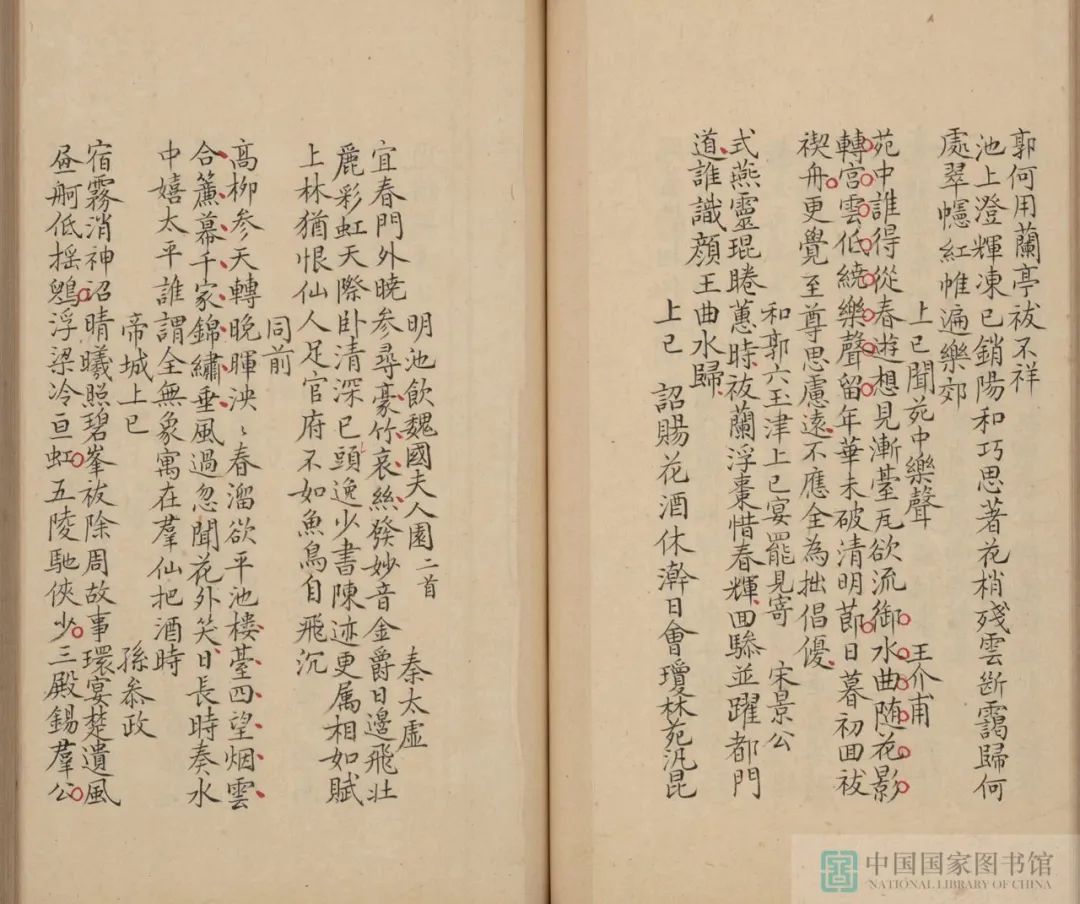 郭何用蘭亭祓不祥
池上澄輝凍已銷陽和巧思著花梢殘雲斷靄歸何
處翠幰紅帷遍樂郊
上巳聞苑中樂聲 王介甫
苑中誰得從春遊想見漸臺瓦欲流御水曲随花影
轉宮雲低繞樂聲留年華未破清明莭日暮初回祓
禊舟更覺至尊思慮遠不應全為拙倡優
和郭六玉津上巳宴罷見寄 宋景公
式燕靈琨睠蕙時祓蘭浮棗惜春輝回驂並躍都門
道誰識顔王曲水歸
上巳 詔賜花酒休澣日會瓊林苑汎昆
明池飲魏國夫人園二首 秦太虛
宜春門外曉参尋豪竹哀絲發妙音金爵日邊飛壮
麗彩虹天際卧清深已頭逸少書陳迹更属相如賦
上林猶恨仙人足官府不如魚鳥自飛沉
同前
高柳參天轉晚暉泱〻春溜欲平池樓臺四望烟雲
合簾幕千家錦繡垂風過忽聞花外笑日長時奏水
中嬉太平誰謂全無象寓在羣仙把酒時
帝城上巳 孫叅政
宿霧消神沼晴曦照碧峯祓除周故事環宴楚遺風
昼舸低摇鷁浮梁冷亘虹五陵馳俠少三殿錫羣公
中国国家图书馆
NATIONAL LIBRARY OF CHINA